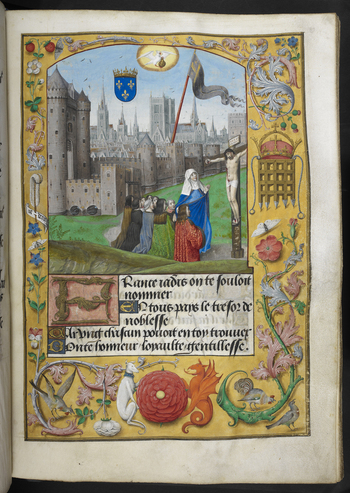 FRance iadis on te souloit
nommer
En tous pays le tresor de
noblesse
chascun pouoit en toy trouuer
Bonte honneur loyaulte gentillesse.